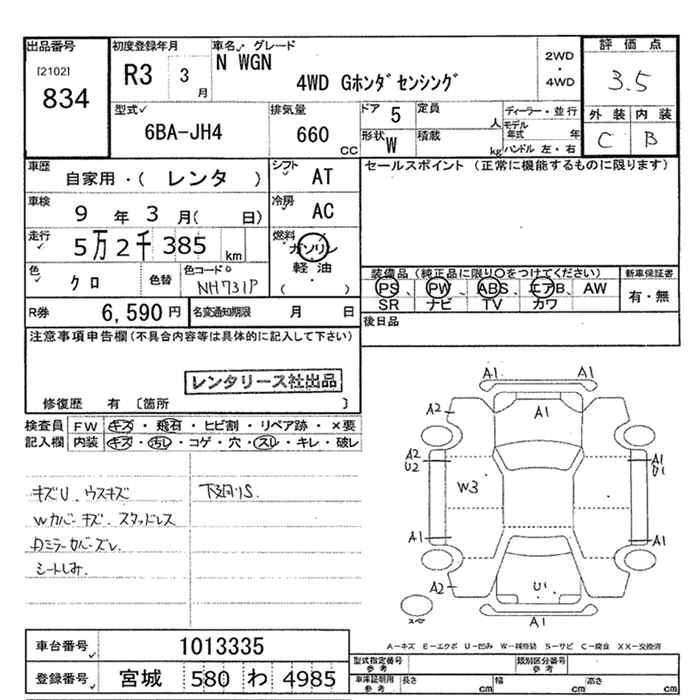 出品番号
[2102]
834
初度登録年月
R3 3 月
車名 グレード
N WGN
4WD Gホンダセンシング
2WD
・
4WD
評価点
3.5
外装 内装
C B
型式
6BA-JH4
排気量
660 CC
ドア 5
定員 人
形状 W
積載 kg
ディーラー・並行
モデル年式 年
ハンドル 左・右
車歴
自家用・( レンタ )
シフト
AT
車検
9 年 3 月( 日)
冷房
AC
走行
5万2千385 km
燃料
ガソリン
軽油
( )
色
クロ
色替
色コード
NH731P
R券 6,590 円
名変通知期限 月 日
セールスポイント (正常に機能するものに限ります)
装備品(純正品に限り○をつけてください)
新車保証書
PS、 PW、 ABS、 エアB、 AW
SR ナビ TV カワ
有・無
後日品
注意事項申告欄(不具合内容等は具体的に記入して下さい)
レンタリース社出品
修復歴 有 〔箇所 〕
検査員記入欄
FW キズ・飛石・ヒビ割・リペア跡・×要
内装 キズ・汚レ・コゲ・穴・スレ・キレ・破レ
キズU. ウスキズ
Wカバーキズ. スタッドレス
シートしみ.
下廻りS.
A1 A1
A2 A1 A2
A2 U2
A1 U1
W3
A1 A1
A2 U1
A1
A…キズ E…エクボ U…凹み W…補修跡 S…サビ C…腐食 XX…交換済
車台番号 1013335
登録番号 宮城 580 わ 4985
型式指定番号 参考
類別区分番号 参考
車庫証明用 参考
長さ cm
幅 cm
高さ cm